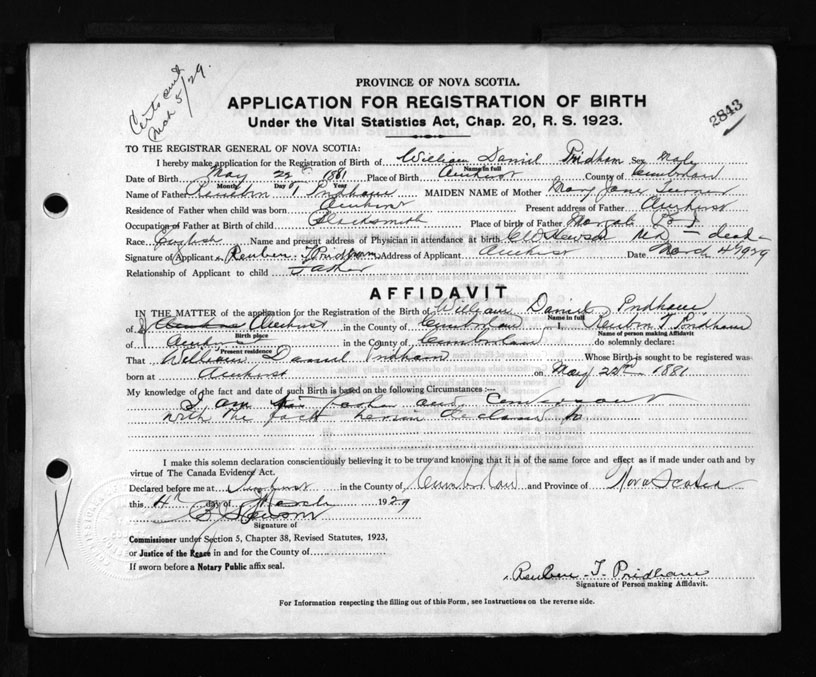 Cert sent
Mch 5/29.
2843
PROVINCE OF NOVA SCOTIA.
APPLICATION FOR REGISTRATION OF BIRTH
Under the Vital Statistics Act, Chap. 20, R. S. 1923.
TO THE REGISTRAR GENERAL OF NOVA SCOTIA:
I hereby make application for the Registration of Birth of William Daniel Pridham Sex Male
Name in full
Date of Birth May 22 1881 Place of Birth Amherst County of Cumberland
Month Day Year
Name of Father Reuben T Pridham MAIDEN NAME of Mother Mary Jane Turner
Residence of Father when child was born Amherst Present address of Father Amherst
Occupation of Father at Birth of child Blacksmith Place of birth of Father
Race English Name and present address of Physician in attendance at birth C W Hewson M.D. – dead –
Signature of Applicant Reuben T Pridham Address of Applicant Amherst Date March 4th 1929
Relationship of Applicant to child Father
AFFIDAVIT
IN THE MATTER of the application for the Registration of the Birth of William Daniel Pridham
Name in full
of Amherst in the County of Cumberland I, Reuben T. Pridham
Birth place Name of person making Affidavit
of Amherst in the County of Cumberland do solemnly declare:
Present residence
That William Daniel Pridham Whose Birth is sought to be registered was
born at Amherst on May 22nd 1881
My knowledge of the fact and date of such Birth is based on the following Circumstances :—
I am his Father and conversant
with the facts herein declared to
I make this solemn declaration conscientiously believing it to be true and knowing that it is of the same force and effect as if made under oath and by
virtue of The Canada Evidence Act.
Declared before me at Amherst in the County of Cumberland and Province of Nova Scotia
this 4th day of March 1929
Signature of
Commissioner under Section 5, Chapter 38, Revised Statutes, 1923,
or Justice of the Peace in and for the County of
If sworn before a Notary Public affix seal.
Reuben T. Pridham
Signature of Person making Affidavit.
For Information respecting the filling out of this Form, see Instructions on the reverse side.